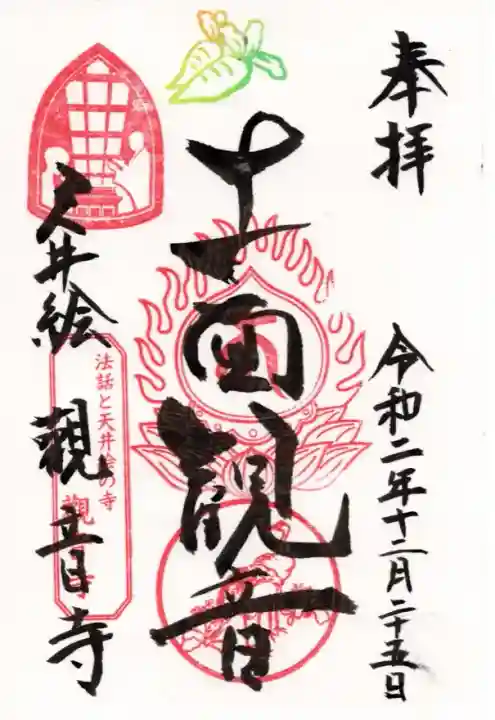 奉拝
令和二年十二月二十五日
十一面観音
天井絵 観音寺
法話と天井絵の寺
観